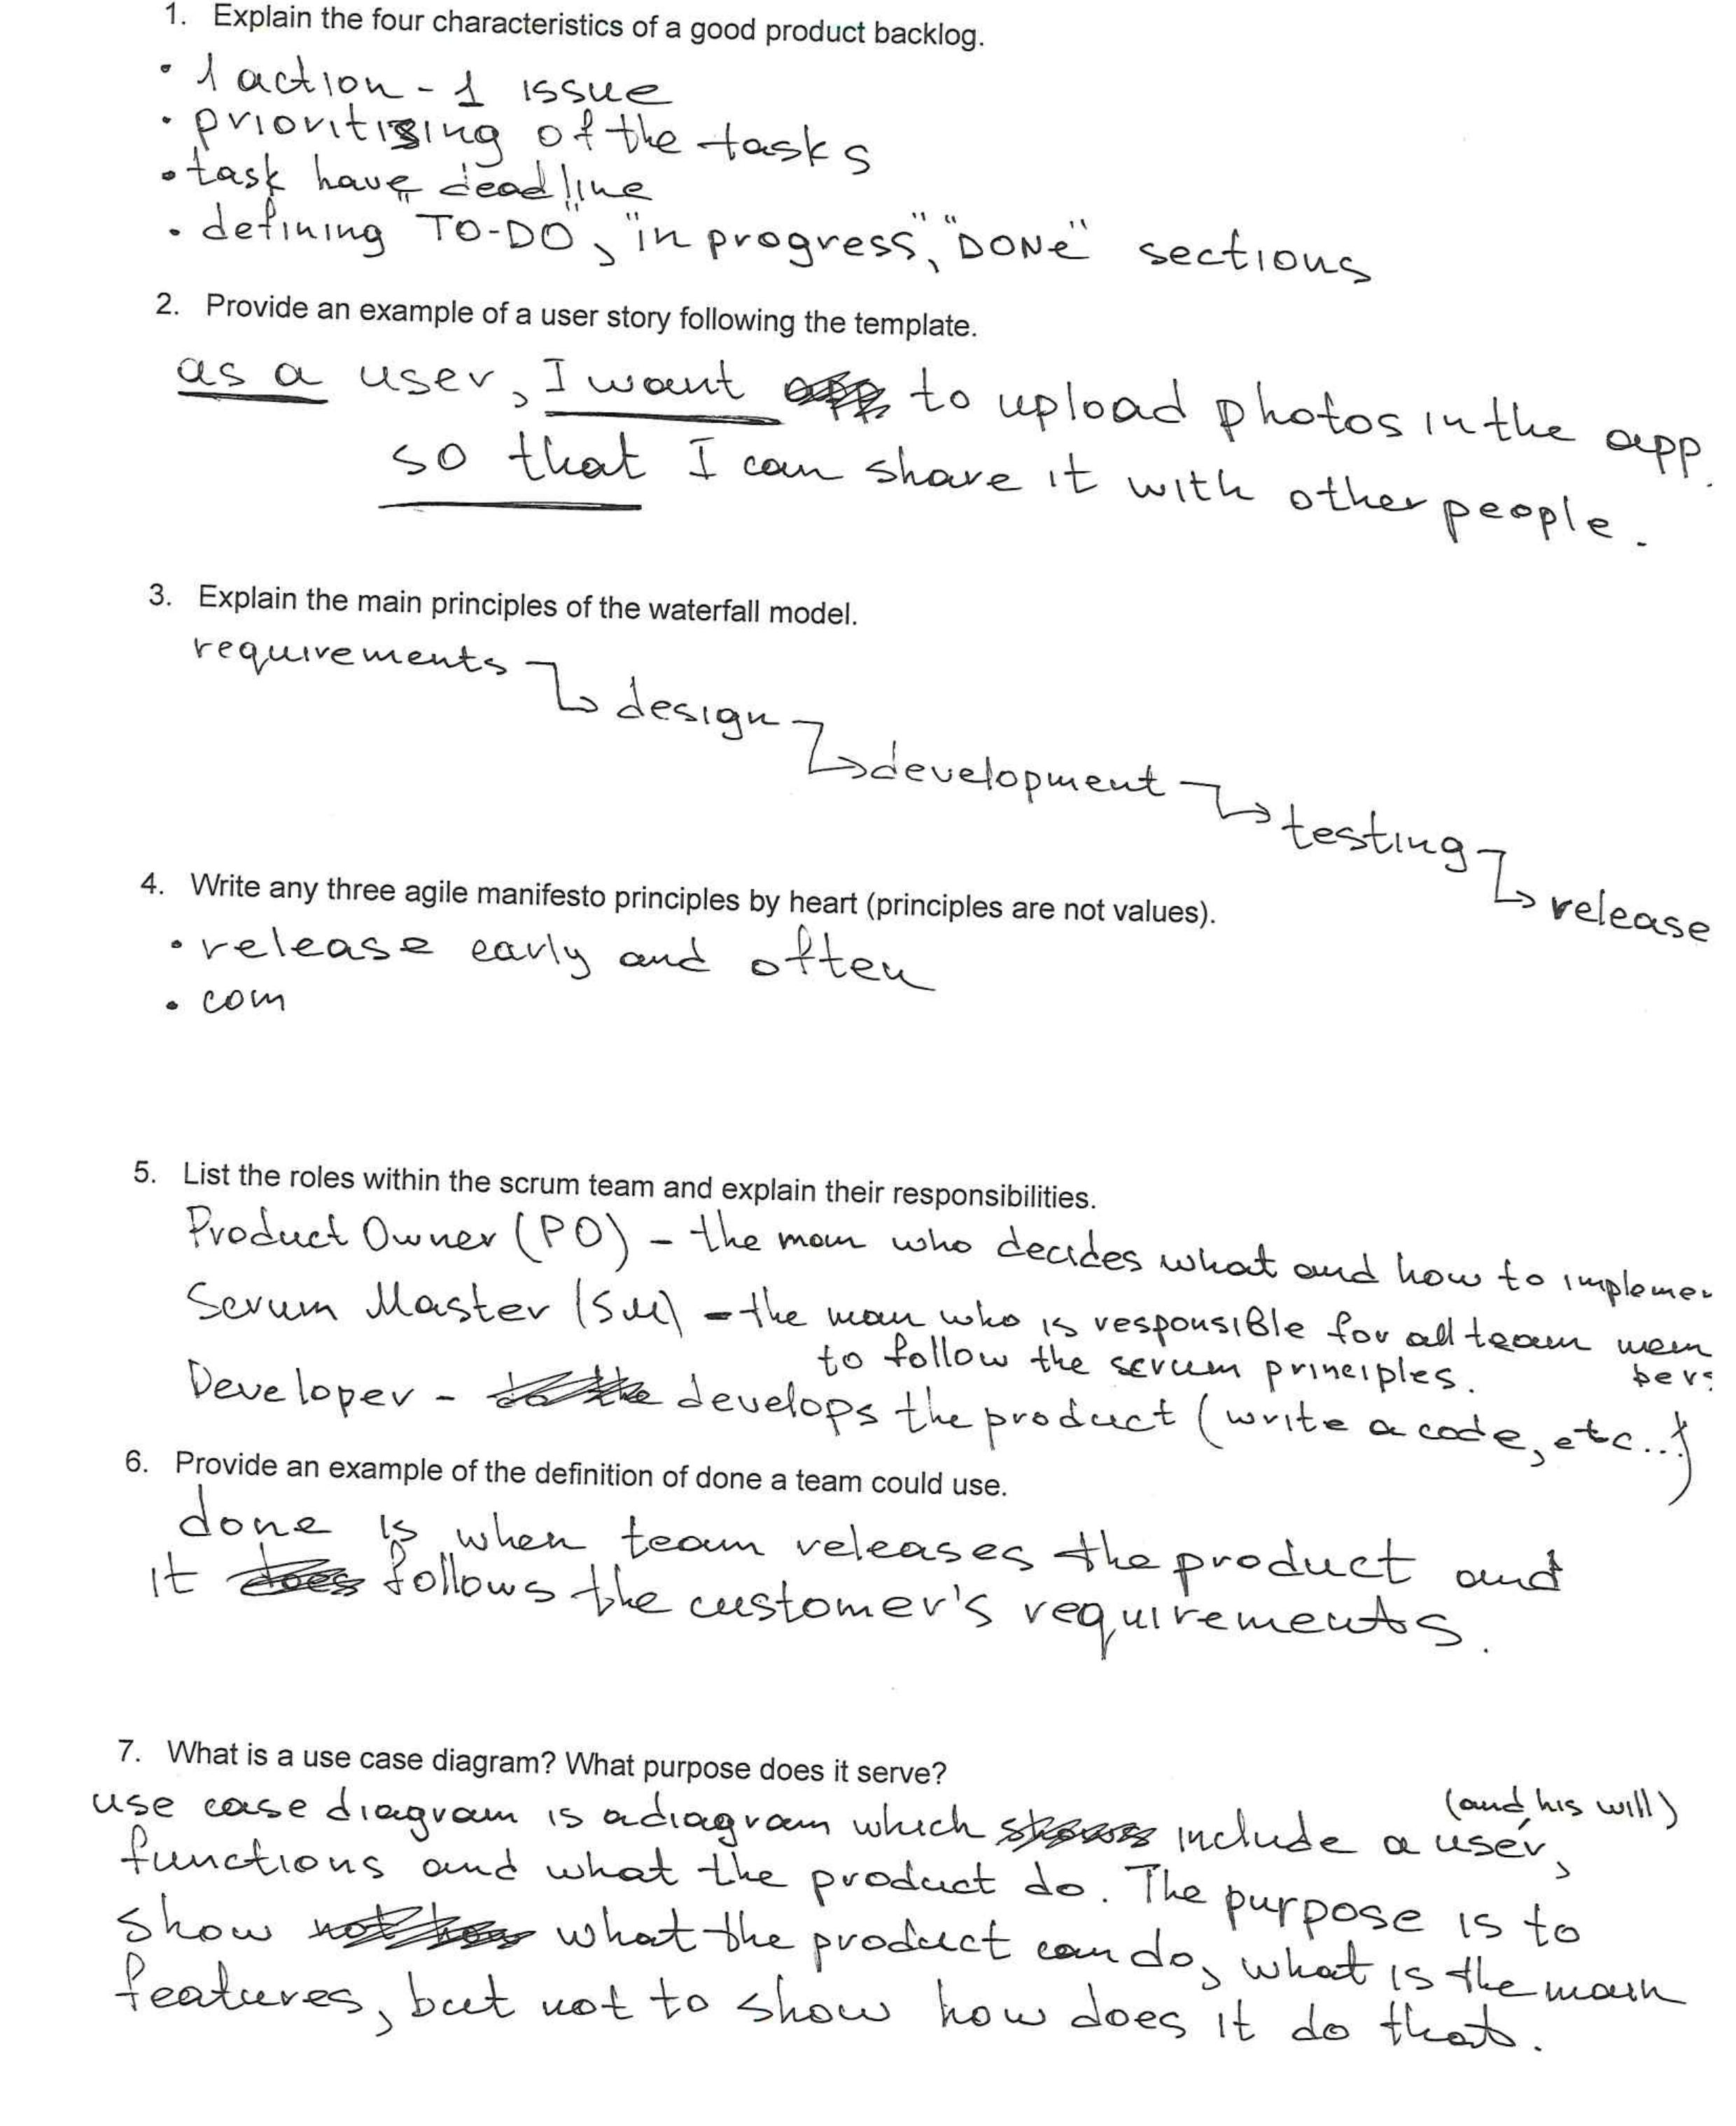 1. Explain the four characteristics of a good product backlog.
• 1 action - 1 issue
• prioritising of the tasks
• task have deadline
• defining "TO-DO", "in progress", "DONE" sections
2. Provide an example of a user story following the template.
as a user, I want to upload photos in the app.
so that I can share it with other people.
3. Explain the main principles of the waterfall model.
requirements
design
development
testing
release
4. Write any three agile manifesto principles by heart (principles are not values).
• release early and often
• com
5. List the roles within the scrum team and explain their responsibilities.
Product Owner (PO) - the man who decides what and how to implemen
Scrum Master (SM) - the man who is responsible for all team mem
bers
to follow the scrum principles.
Developer - develops the product (write a code, etc..)
6. Provide an example of the definition of done a team could use.
done is when team releases the product and
it follows the customer's requirements.
7. What is a use case diagram? What purpose does it serve?
(and his will)
use case diagram is a diagram which include a user,
functions and what the product do. The purpose is to
show what the product can do, what is the main
features, but not to show how does it do that.